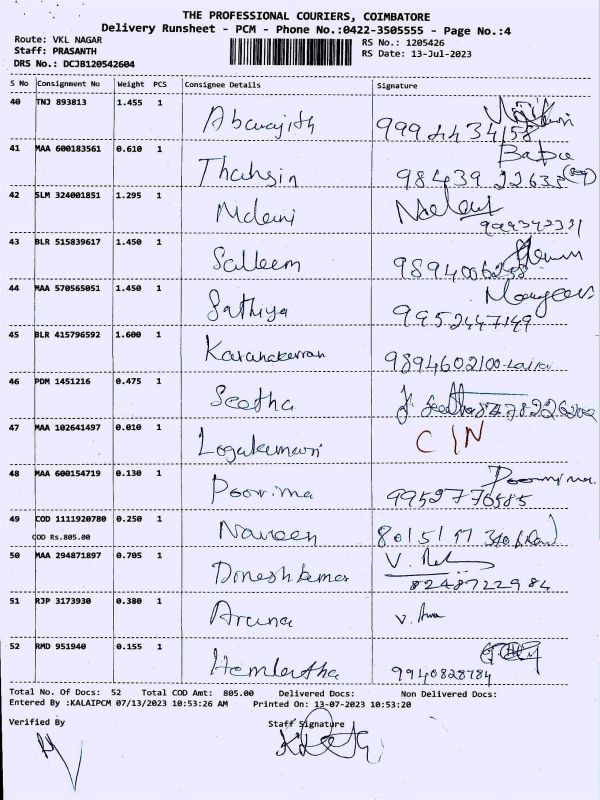 THE PROFESSIONAL COURIERS, COIMBATORE
Delivery Runsheet - PCM - Phone No.:0422-3505555 - Page No.:4
Route: VKL NAGAR
Staff: PRASANTH
DRS No.: DCJB120542604
RS No.: 1205426
RS Date: 13-Jul-2023
S No Consignment No Weight PCS Consignee Details Signature
40 TNJ 893813 1.455 1 Abarajith 9994434158
41 MAA 600183561 0.610 1 Thahsin Baba 98439 22633
42 SLM 324001851 1.295 1
43 BLR 515839617 1.450 1 Salleem
44 MAA 570565051 1.450 1 Sathiya 9952447149
45 BLR 415796592 1.600 1 Karunakarran 9894602100
46 PDM 1451216 0.475 1 Seetha
47 MAA 102641497 0.010 1 Logakumari C/N
48 MAA 600154719 0.130 1 Poorima 9952776585
49 COD 1111920780 0.250 1 Naveen
COD Rs.805.00
50 MAA 294871897 0.705 1 Dineshkumar 8248722984
51 RJP 3173930 0.380 1 Aruna
52 RMD 951940 0.155 1 Hemlatha 9940828784
Total No. Of Docs: 52 Total COD Amt: 805.00 Delivered Docs: Non Delivered Docs:
Entered By :KALAIPCM 07/13/2023 10:53:26 AM Printed On: 13-07-2023 10:53:20
Verified By Staff Signature